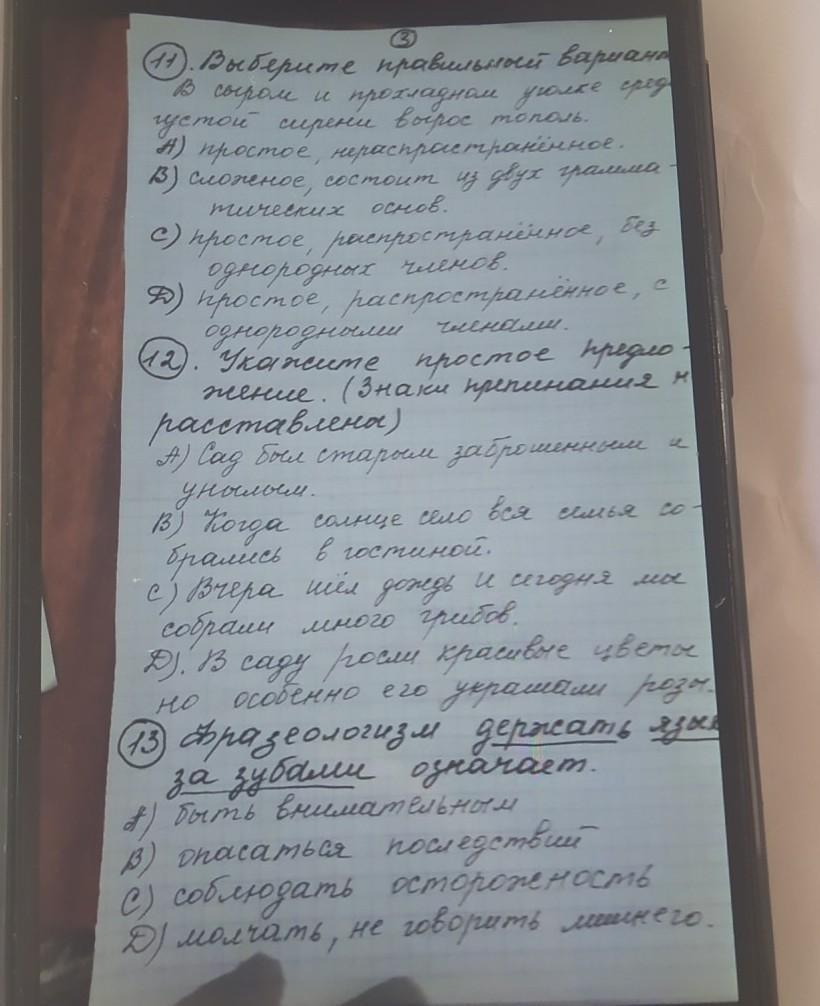 3
11. Выберите правильный вариант
В сыром и прохладном уголке сред
густой сирени вырос тополь.
А) простое, нераспространённое.
В) сложное, состоит из двух грамма-
тических основ.
С) простое, распространённое, без
однородных членов.
Д) простое, распространённое, с
однородными членами.
12. Укажите простое предло-
жение. (Знаки препинания н
расставлены)
А) Сад был старым заброшенным и
унылым.
В) Когда солнце село вся семья со-
брались в гостиной.
С) Вчера шёл дождь и сегодня мы
собрали много грибов.
Д). В саду росли красивые цветы
но особенно его украшали розы.
13 Фразеологизм держать язык
за зубами означает.
А) быть внимательным
В) опасаться последствий
С) соблюдать осторожность
Д) молчать, не говорить лишнего.